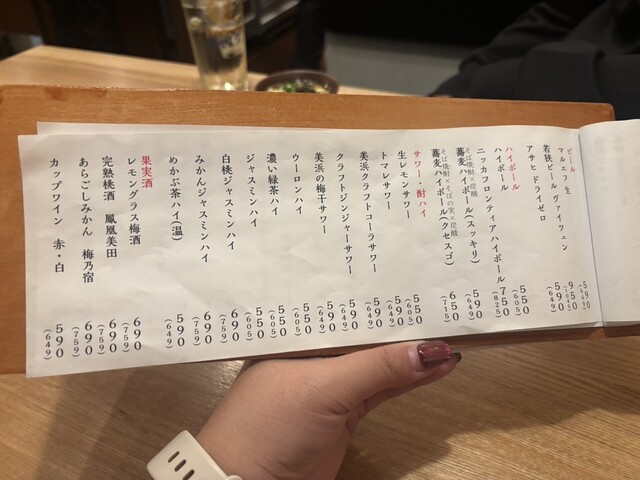 ビール
マルエフ 生 590
若狭ビール ヴァイツェン 950
アサヒドライゼロ 590 (649)
ハイボール
ハイボール 550 (605)
ニッカフロンティアハイボール 750 (825)
そば焼酎×炭酸
蕎麦ハイボール(スッキリ) 590 (649)
そば焼酎×そばの実×炭酸
蕎麦ハイボール(クセスゴ) 650 (715)
サワー・酎ハイ
生レモンサワー 550 (605)
トマレサワー 590 (649)
美浜クラフトコーラサワー 590 (649)
クラフトジンジャーサワー 590 (649)
美浜の梅干サワー 590 (649)
ウーロンハイ 550 (605)
濃い緑茶ハイ 550 (605)
ジャスミンハイ 550 (605)
白桃ジャスミンハイ 690 (759)
みかんジャスミンハイ 690 (759)
めかぶ茶ハイ(温) 590 (649)
果実酒
レモングラス梅酒 690 (759)
完熟桃酒 鳳凰美田 690 (759)
あらごしみかん 梅乃宿 690 (759)
カップワイン 赤・白 590 (649)